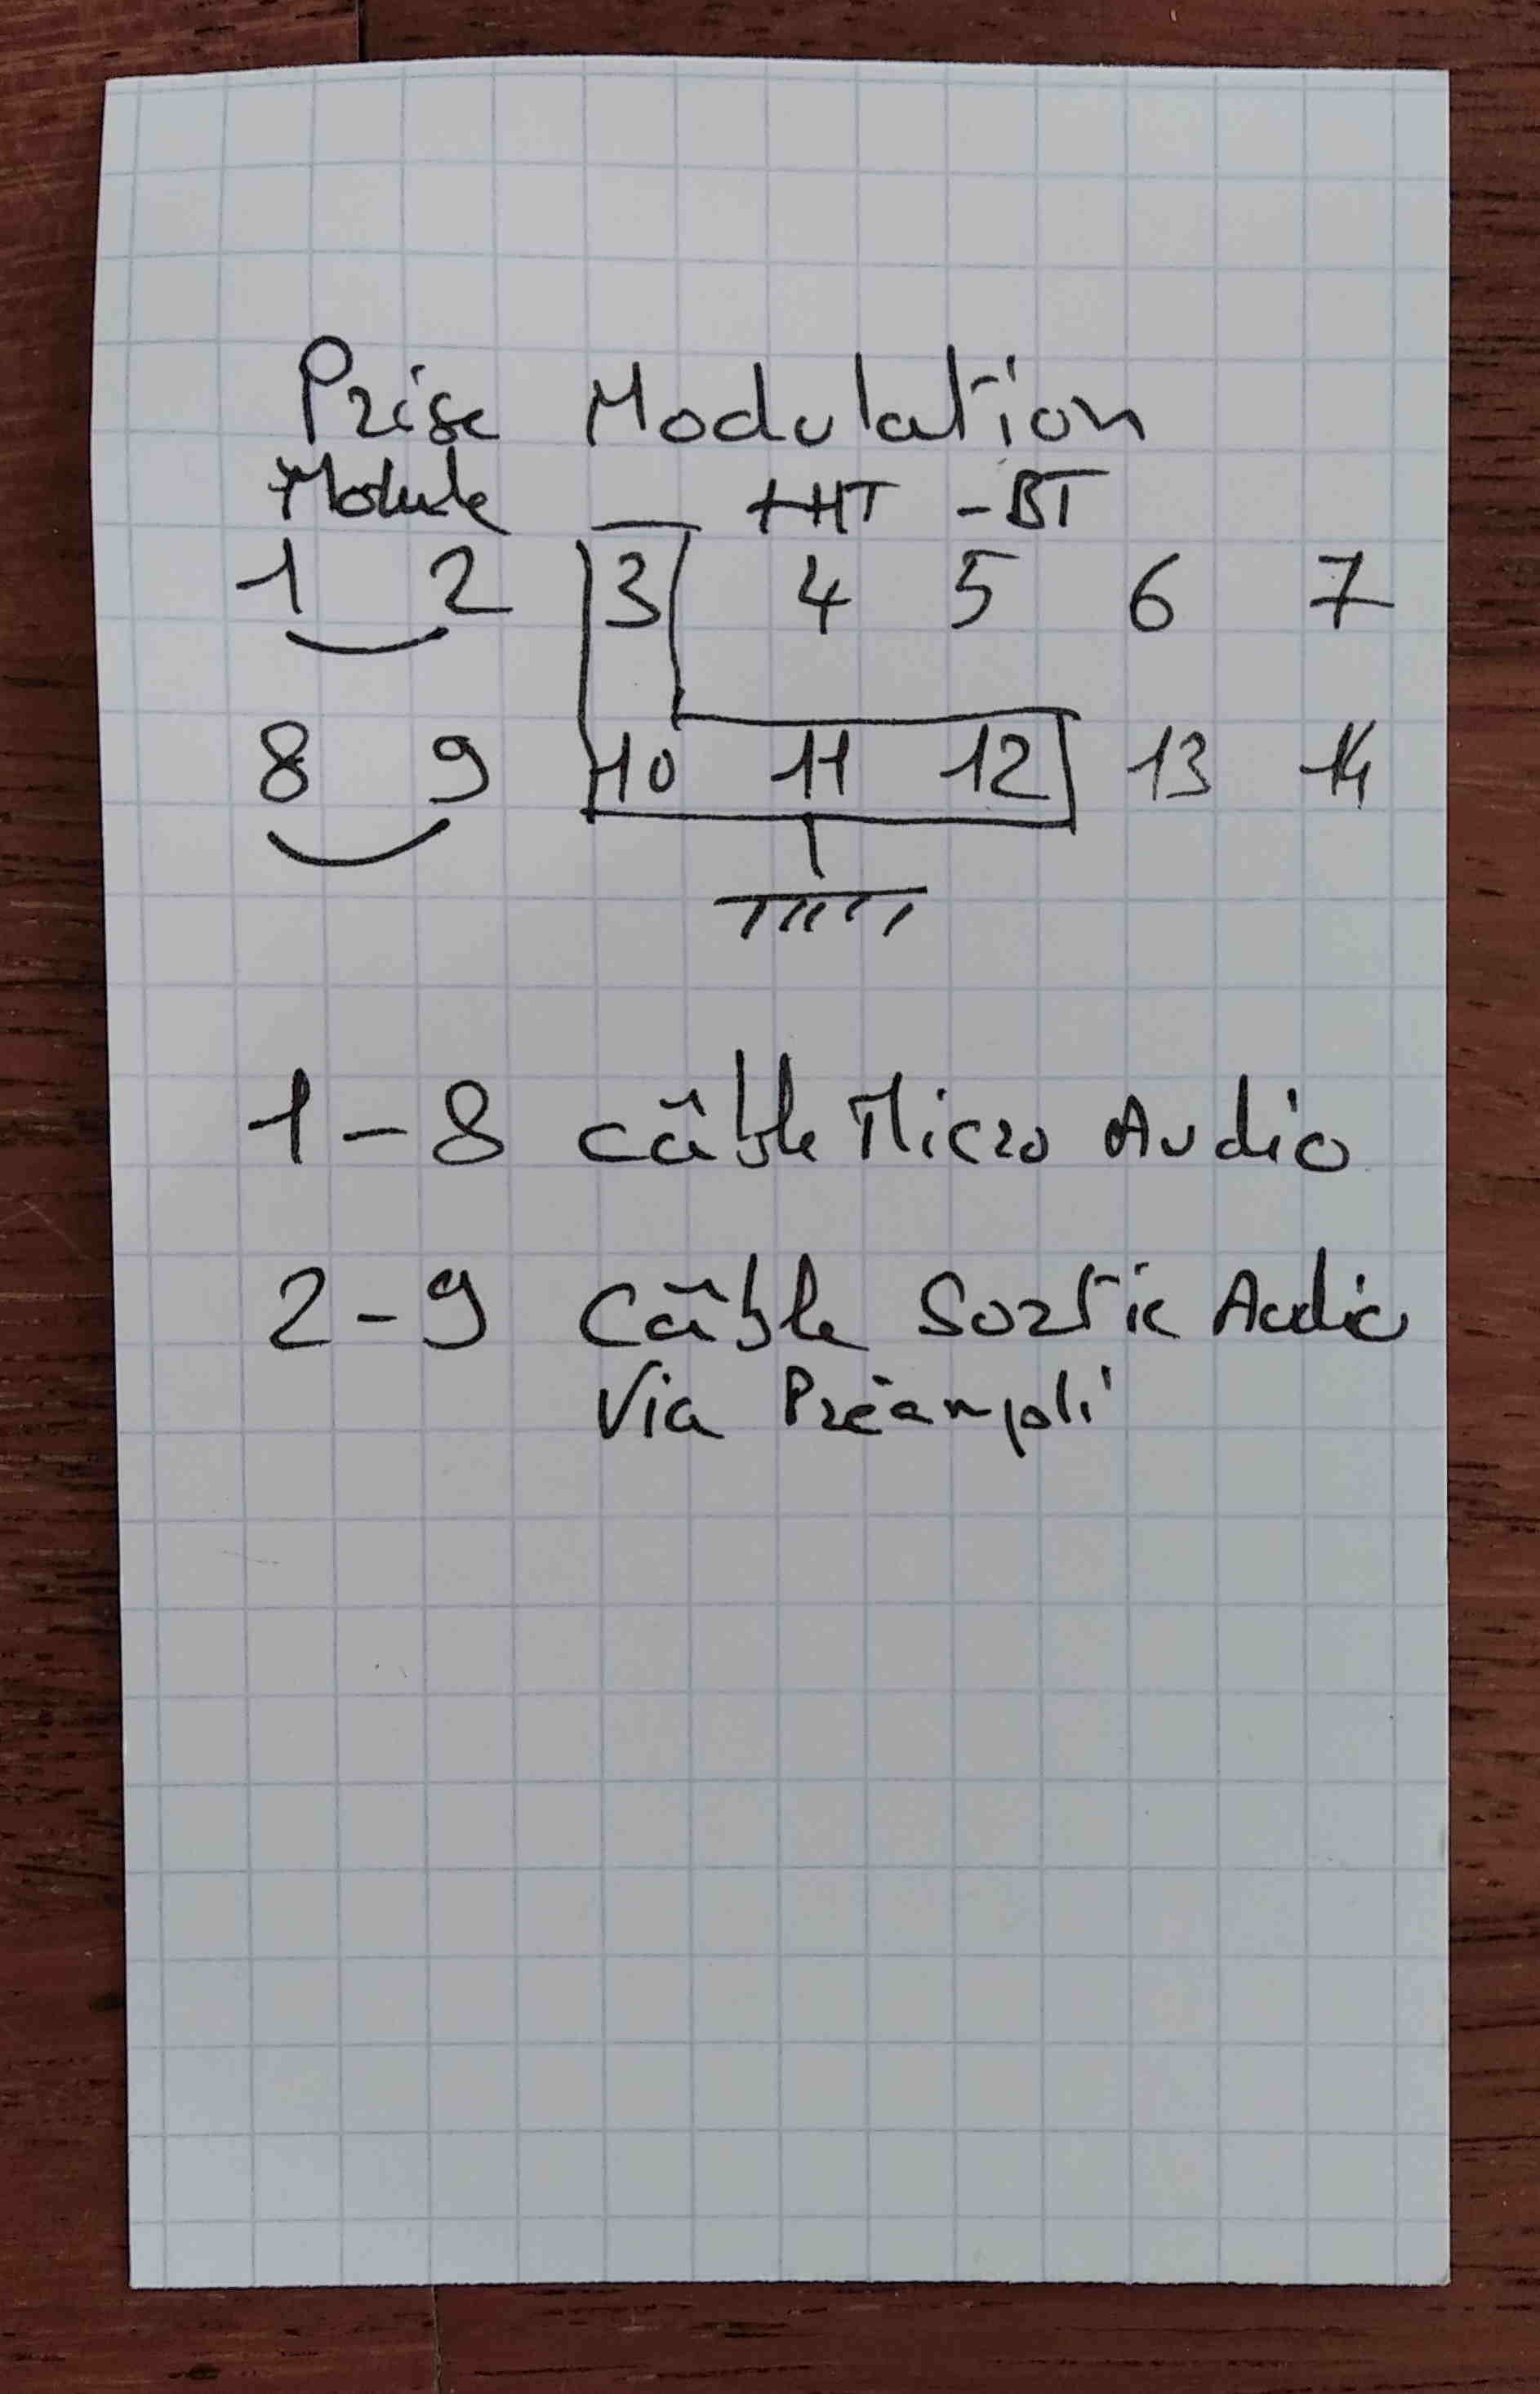 Prise Modulation
Module +HT -BT
1 2 3 4 5 6 7
8 9 10 11 12 13 14
1-8 câble Micro Audio
2-9 Câble Sortie Audio
Via Préampli